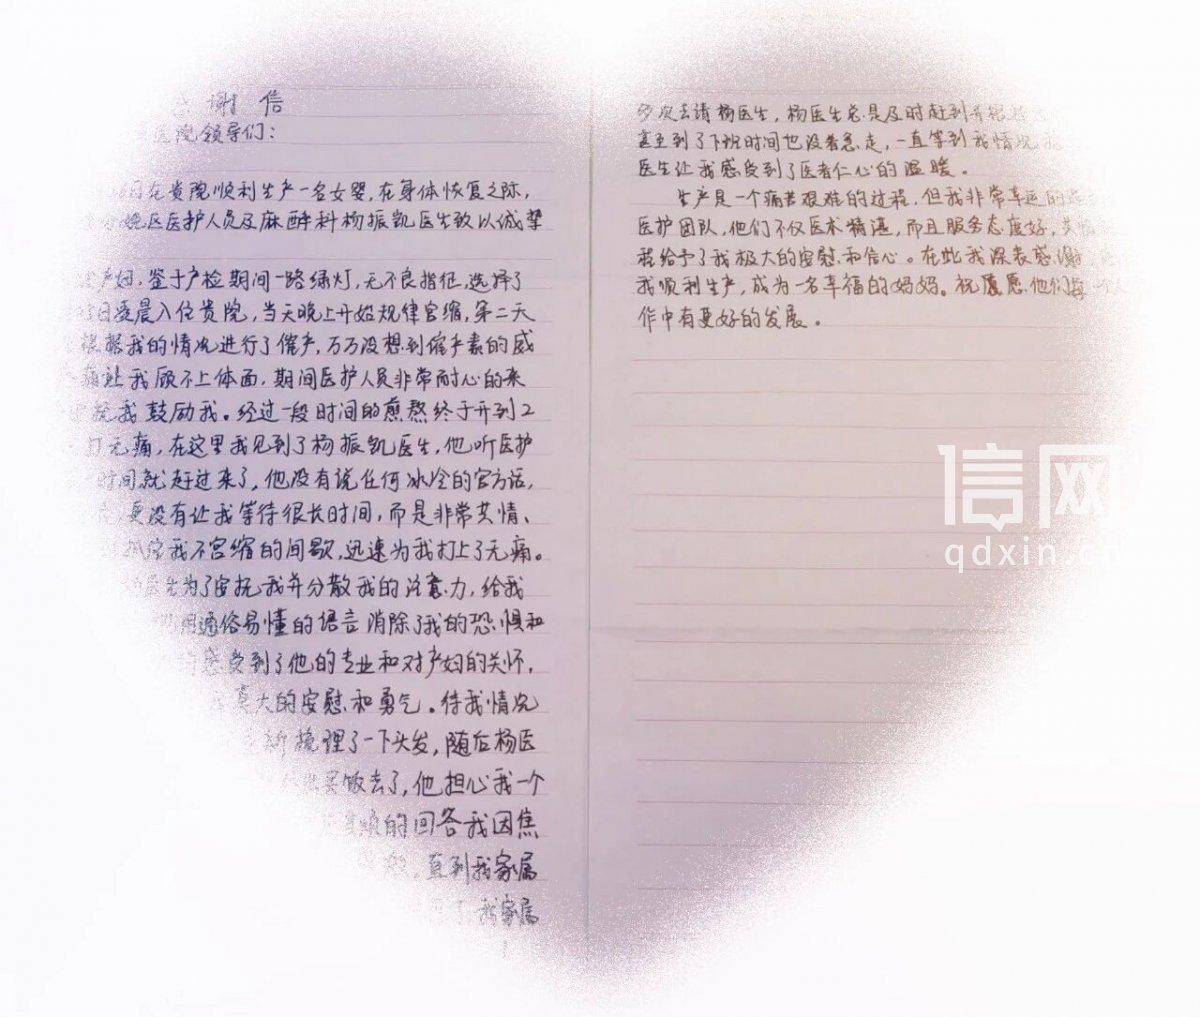 谢信
医院领导们：
日在贵院顺利生产一名女婴，在身体恢复之际，
娩区医护人员及麻醉科杨振凯医生致以诚挚
产妇，鉴于产检期间一路绿灯，无不良指征，选择了
日凌晨入住贵院，当天晚上开始规律宫缩，第二天
根据我的情况进行了催产，万万没想到催产素的威
痛让我顾不上体面，期间医护人员非常耐心的来
抚我鼓励我。经过一段时间的煎熬终于开到2
打无痛，在这里我见到了杨振凯医生，他听医护
时间就赶过来了，他没有说任何冰冷的官方话，
更没有让我等待很长时间，而是非常共情、
我不宫缩的间歇，迅速为我打上了无痛。
为了安抚我并分散我的注意力，给我
用通俗易懂的语言消除了我的恐惧和
感受到了他的专业和对产妇的关怀，
莫大的安慰和勇气。待我情况
新梳理了一下头发，随后杨医
买饭去了，他担心我一个
烦的回答我因焦
直到我家属
我家属
多次去请杨医生，杨医生总是及时赶到并
甚至到了下班时间也没着急走，一直等到我情况
医生让我感受到了医者仁心的温暖。
生产是一个痛苦艰难的过程，但我非常幸运的
医护团队，他们不仅医术精湛，而且服务态度好，
程给予了我极大的安慰和信心。在此我深表感谢，
我顺利生产，成为一名幸福的妈妈。祝愿他们每一
作中有更好的发展。
信网
qdxin.cn